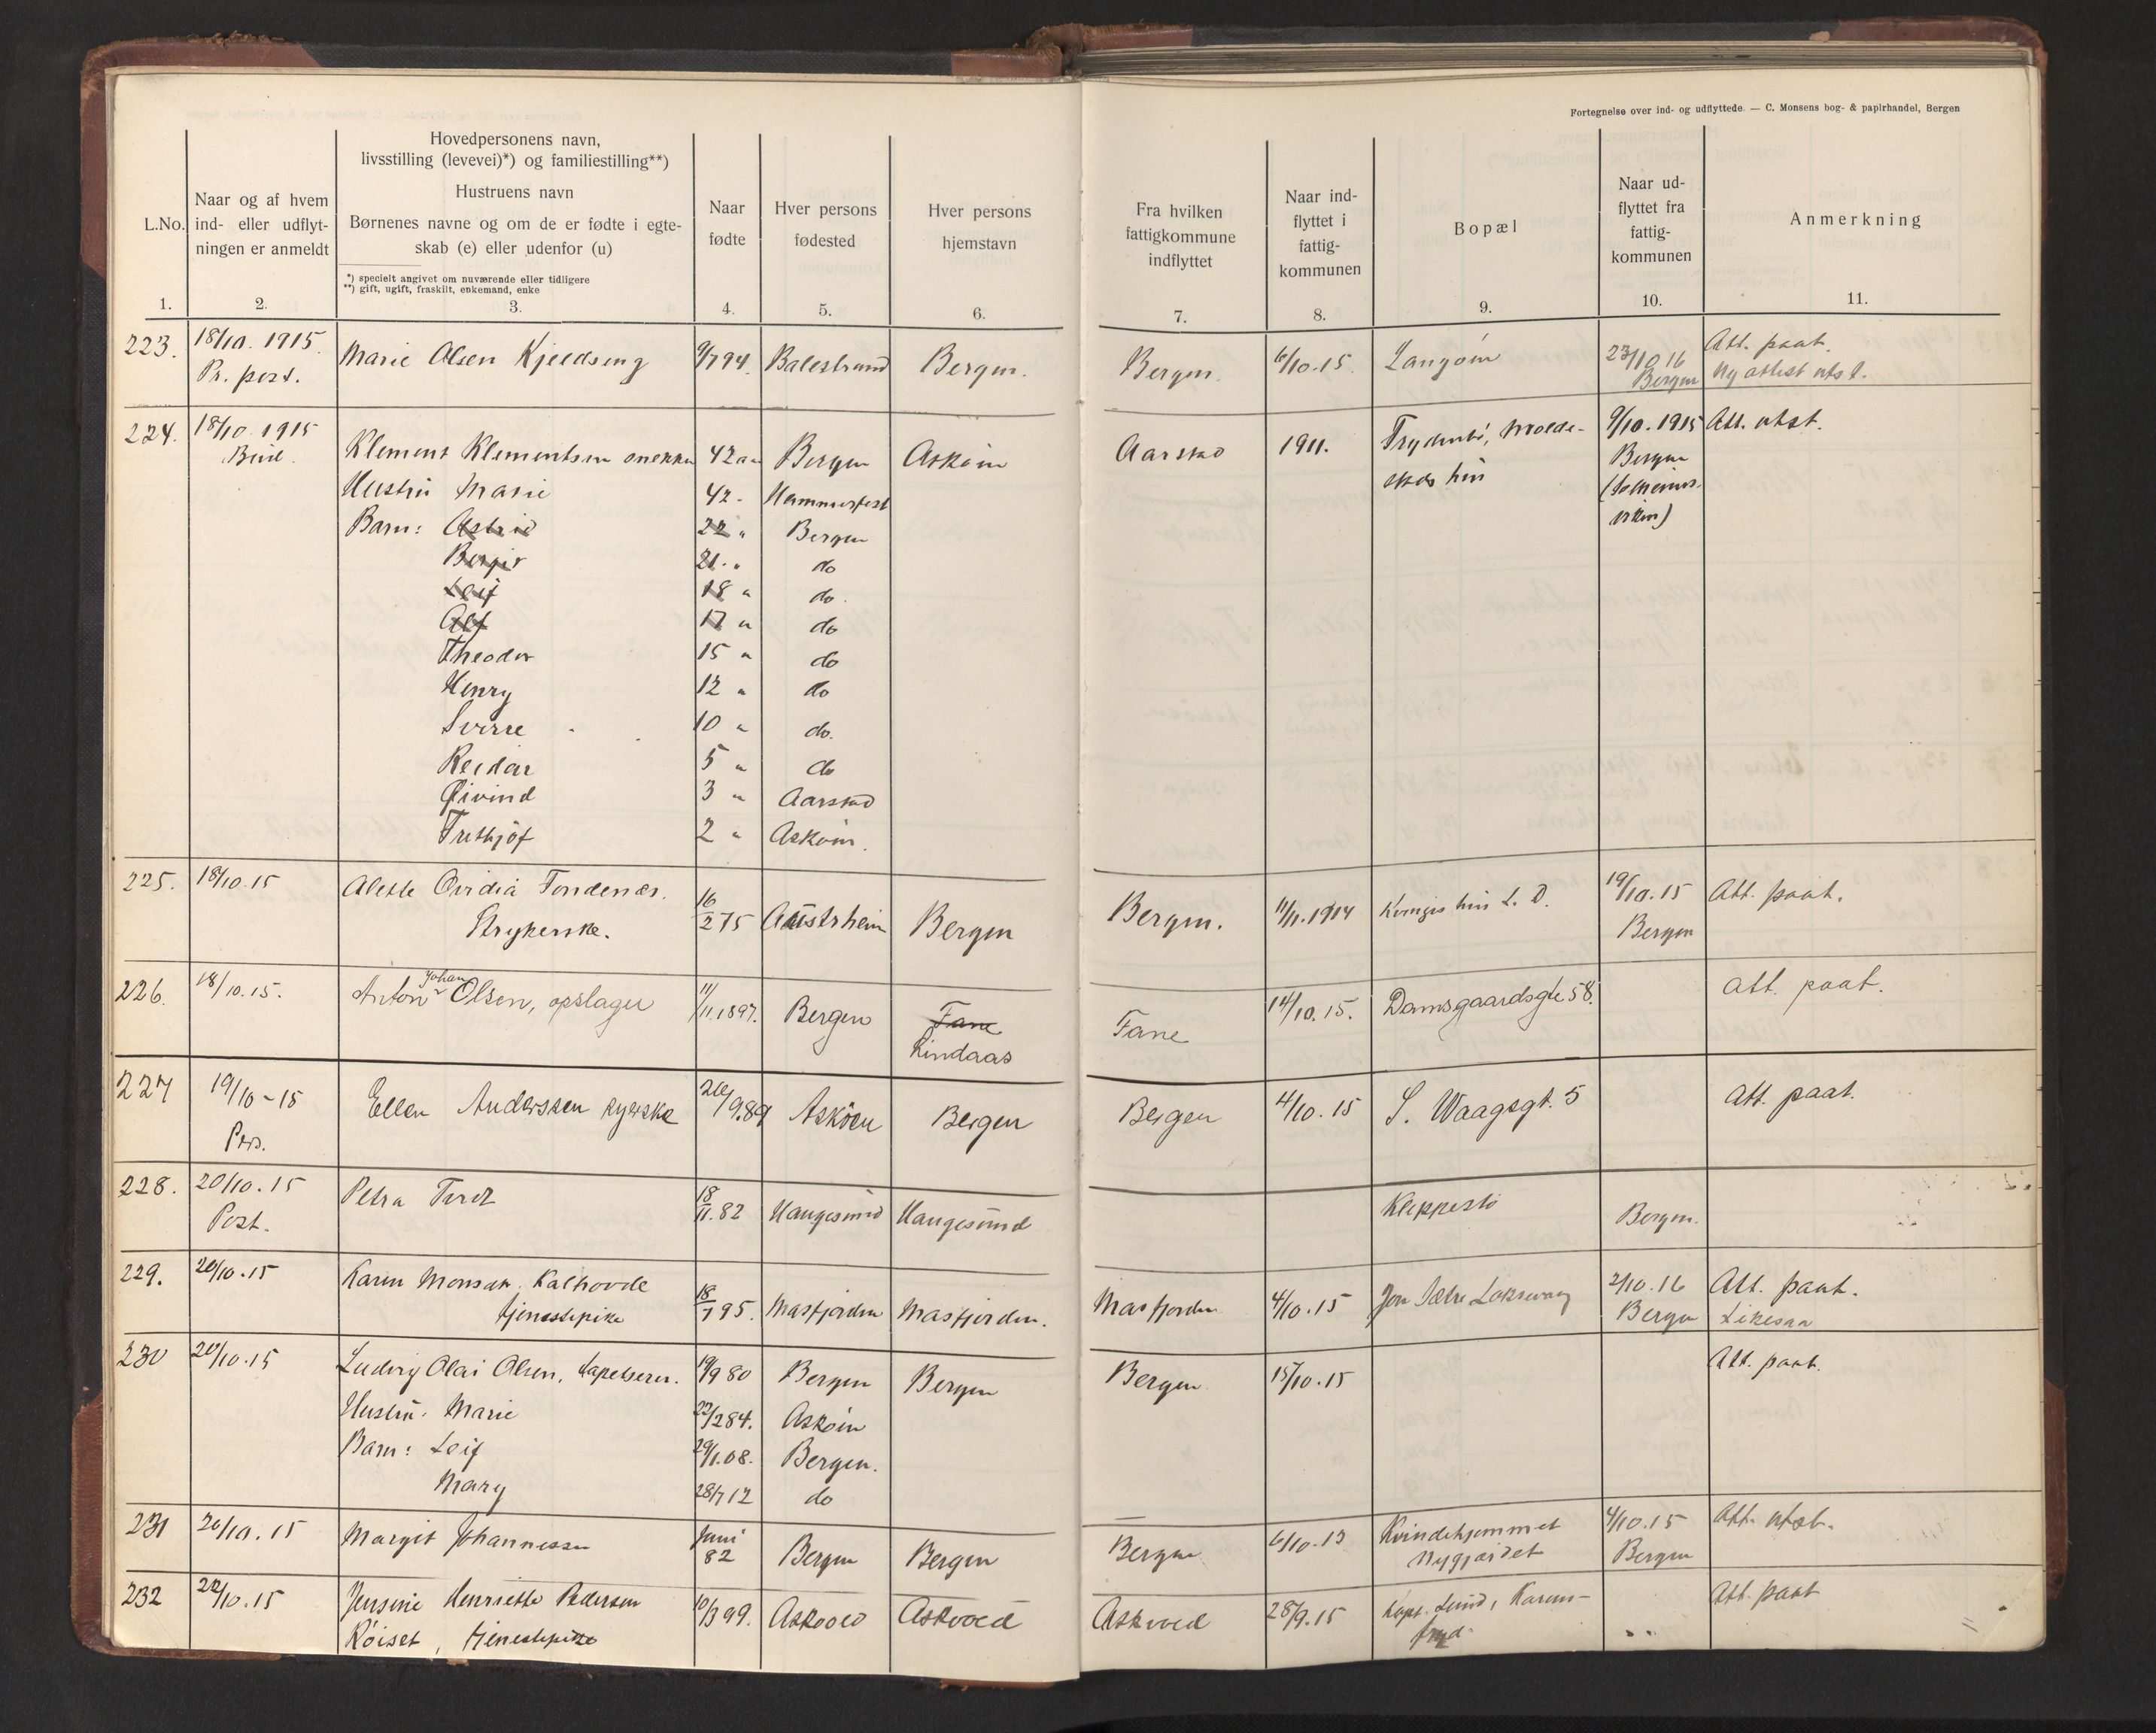 Fortegnelse over ind- og udflyttede. — C. Monsens bog- & papirhandel, Bergen
L.No.
1.
Naar og af hvem
ind- eller udflyt-
ningen er anmeldt
2.
Hovedpersonens navn,
livsstilling (levevei)*) og familiestilling**)
Hustruens navn
Børnenes navne og om de er fødte i egte-
skab (e) eller udenfor (u)
*) specielt angivet om nuværende eller tidligere
**) gift, ugift, fraskilt, enkemand, enke
3.
Naar
fødte
4.
Hver persons
fødested
5.
Hver persons
hjemstavn
6.
Fra hvilken
fattigkommune
indflyttet
7.
Naar ind-
flyttet i
fattig-
kommunen
8.
Bopæl
9.
Naar ud-
flyttet fra
fattig-
kommunen
10.
Anmerkning
11.
223. 18/10. 1915. Marie Olsen Kjeldseng 9/7 94. Balestrand Bergen. Bergen. 6/10.15. Langøen 23/10 16 Att. paat.
Pr. post. Bergen Ny attest utst.
224. 18/10. 1915 Klement Klementsen snekker 42 aar Bergen Askøen Aarstad 1911. Molde- 9/10. 1915 Att. utst.
Bud. Hustru Marie 42 - Hammerfest Bergen
Barn: Astrid 22 " Bergen
21. " do
Leif 18 " do.
Alf 17 " do
Theodor 15 " do
Henry 12 " do
Sverre 10 " do.
Reidar 5 " do
Øivind 3 " Aarstad
Frithjof 2 " Askøen.
225. 18/10.15 Alette Ovidia Tondenes. 16/2 75 Austrheim Bergen Bergen. 11/11.1914 L. D. 19/10.15 Att. paat.
Strykerske. Bergen
226. 18/10.15. Anton Johan Olsen, opslager 11/11.1897. Bergen Fane Fane 14/10.15. Damsgaardsgte 58. Att. paat.
Lindaas
227 19/10-15 Ellen Anderssen syerske 20/9.89 Askøen Bergen Bergen 4/10.15 S. Waagsgt. 5 Att. paat.
Pers.
228. 20/10.15 Petra 18/11.82 Haugesund Haugesund Kleppestø Bergen.
Post.
229. 20/10.15 Karen Monsen Kalhovde 18/7 95. Masfjorden Masfjorden. Masfjorden 4/10.15 2/10.16 Att. paat.
tjenestepike Bergen Likesaa
230 20/10.15 Ludvig Olai Olsen, tapetserer. 19/9 80 Bergen Bergen Bergen 15/10.15 Att. paat.
Hustru: Marie 22/2 84. Askøen
Barn: Leif 29/1.08. Bergen.
Mary 28/7 12 do
231 20/10.15 Margit Johannessen Juni 82 Bergen Bergen Bergen 6/10.13 Kvindehjemmet 4/10.15 Att. utst.
Nygaardet Bergen
232 22/10.15 Jensine Henriette Pedersen 10/3 99. Askvold Askvold Askvold 28/9.15 Kapt. Lund, Karens- Att. paat
Røiset, tjenestepike fryd